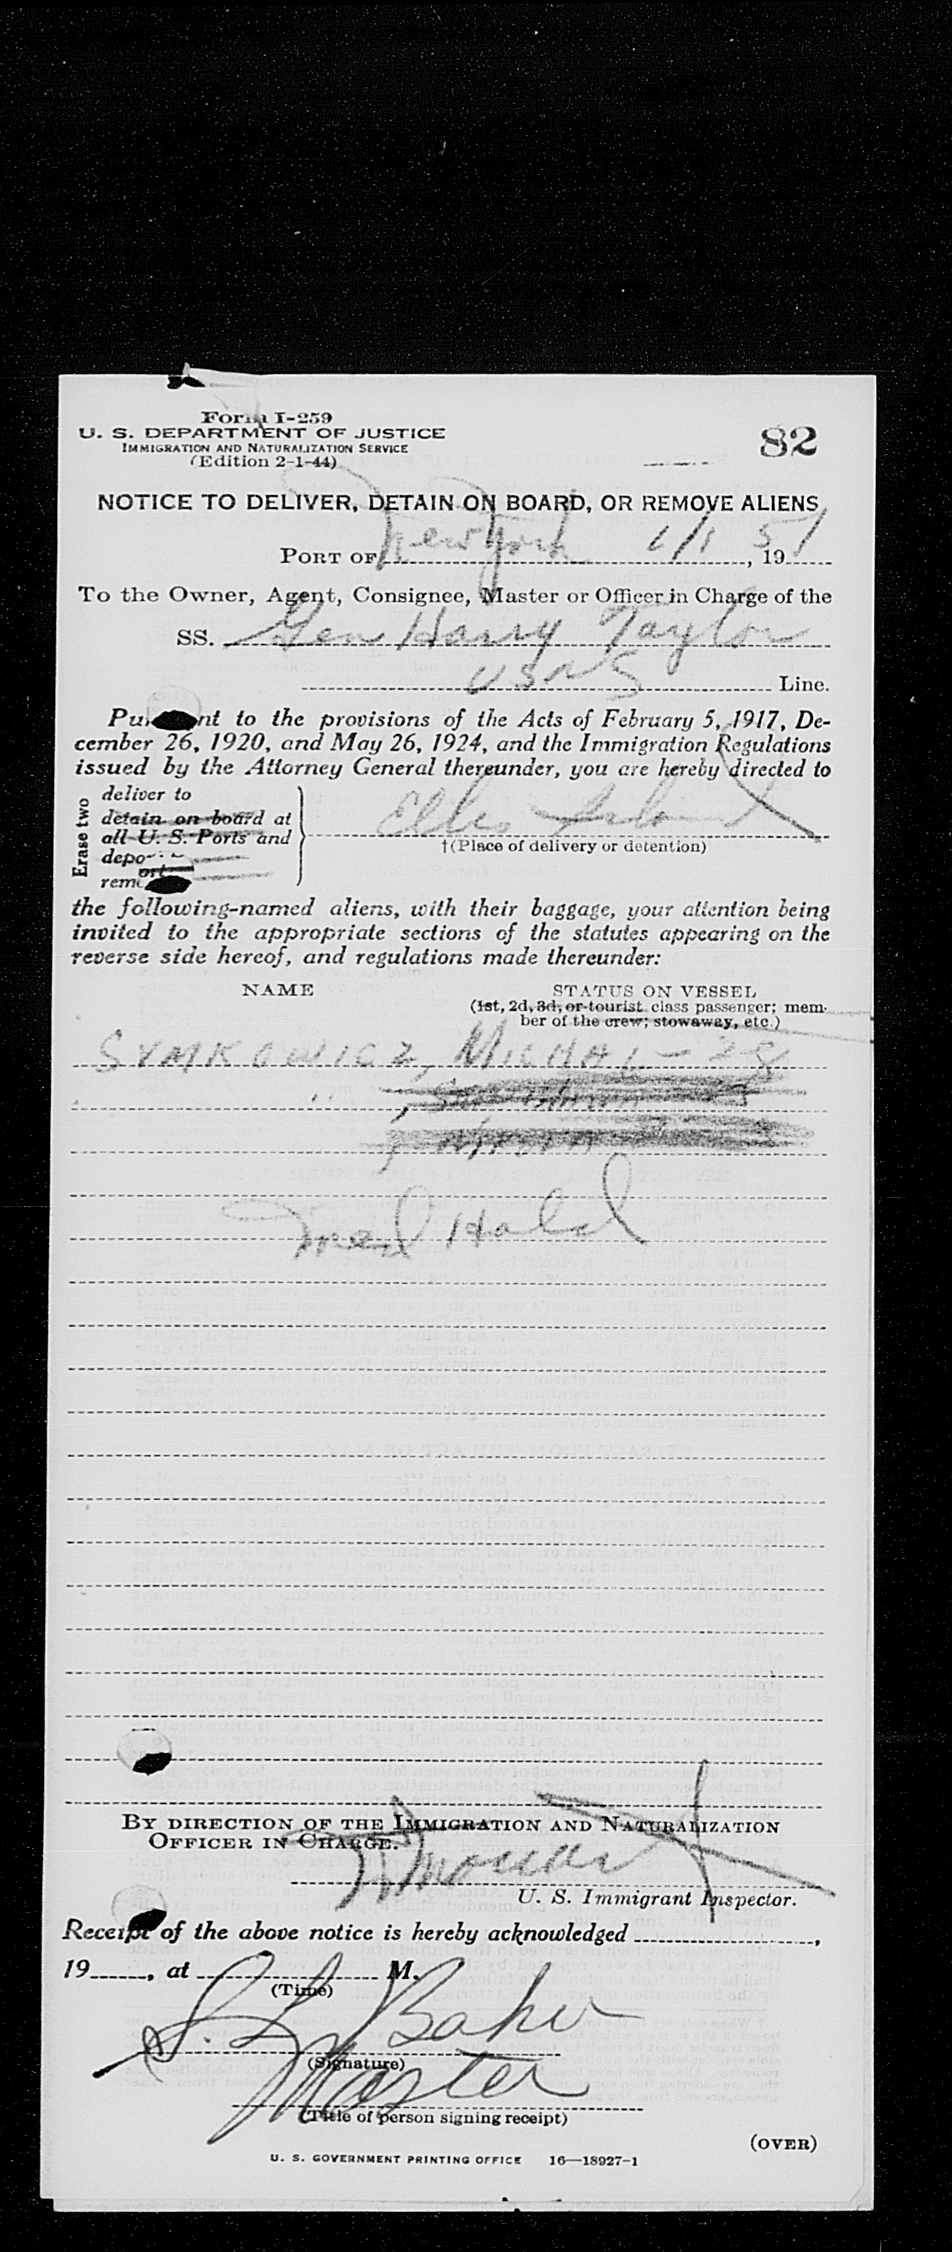 Form I-259
U. S. DEPARTMENT OF JUSTICE
IMMIGRATION AND NATURALIZATION SERVICE
(Edition 2-1-44)
82
NOTICE TO DELIVER, DETAIN ON BOARD, OR REMOVE ALIENS
PORT OF New York 1/1, 1951
To the Owner, Agent, Consignee, Master or Officer in Charge of the
SS. Gen Harry Taylor
USNS Line.
Pu nt to the provisions of the Acts of February 5, 1917, De-
cember 26, 1920, and May 26, 1924, and the Immigration Regulations
issued by the Attorney General thereunder, you are hereby directed to
Erase two
deliver to
detain on board at
all U. S. Ports and
depo
remo
Ellis Island
†(Place of delivery or detention)
the following-named aliens, with their baggage, your attention being
invited to the appropriate sections of the statutes appearing on the
reverse side hereof, and regulations made thereunder:
NAME
STATUS ON VESSEL
(1st, 2d, 3d, or tourist class passenger; mem-
ber of the crew; stowaway, etc.)
SYMKOWICZ, MICHAL - 28
Med Hold
BY DIRECTION OF THE IMMIGRATION AND NATURALIZATION
OFFICER IN CHARGE.
U. S. Immigrant Inspector.
Receipt of the above notice is hereby acknowledged ,
19 , at M.
(Time)
S. L. Baker
(Signature)
Master
(Title of person signing receipt)
(OVER)
U. S. GOVERNMENT PRINTING OFFICE 16—18927-1